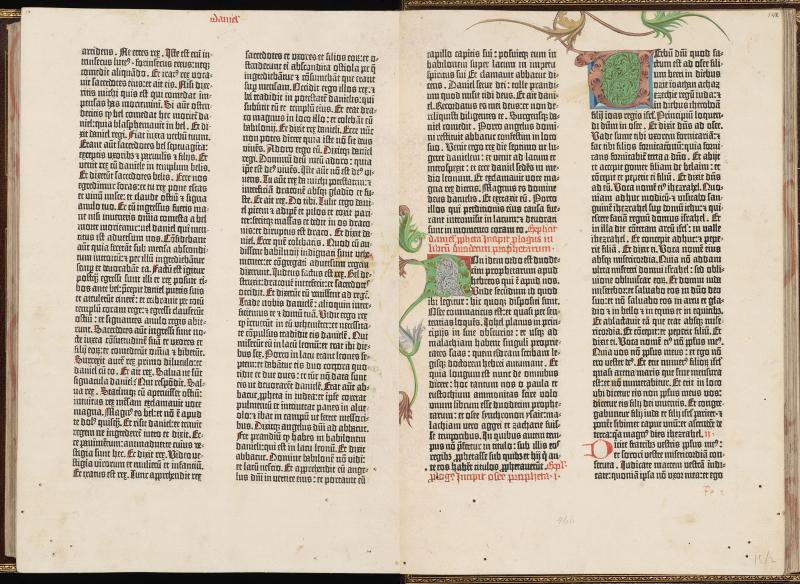 Daniel
arcidens. Ne erres rex. Iste est em̄ in-
trinsecus lute9 ⁊ forinsecus ereus: neq̄;
comedit aliquādo. Et irat9 rex voca-
uit sacerdotes eius: et ait eis. Nisi dixe-
ritis michi quis est qui comedat im-
pensas has moriemini. Si aūt osten-
deritis q̄ bel comedat hec morief da-
niel: quia blasphemauit in bel. Et di-
xit daniel regi. Fiat iuxta verbū tuum.
Erant aūt sacerdotes bel septuaginta:
exceptis uxorib3 ⁊ paruulis ⁊ filijs. Et
venit rex cū daniele in templum belis.
Et dixerūt sacerdotes belis. Ecce nos
egredimur foras: et tu rex pone escas
et vinū misce: et claude ostiū ⁊ signa
anulo tuo. Et cū ingressus fueris ma-
ne nisi inueneris oīnia comesta a bel
morte moriemur: uel daniel qui men-
titus est aduersum nos. Cōtēnebant
aūt quia fecerāt sub mensa abscondi-
tum introitū: ⁊ per illū ingrediebant
semp et deuorabāt ea. Factū est igitur
postq̄ egressi sunt illi et rex posuit ci-
bos ante bel: precepit daniel pueris suis
et attulerūt cinerē: et cribrauit per totū
templū coram rege: et egressi clauserūt
ostiū: et signantes anulo regis abie-
runt. Sacerdotes aūt ingressi sunt no-
cte iuxta cōsuetudinē suā et uxores et
filij eoꝝ: et comederūt oīnia ⁊ biberūt.
Surrexit autē rex primo diluculo: et
daniel cū eo. Et ait rex. Salua ne sūt
signacula daniel? Qui respōdit. Sal-
ua rex. Statimq̄; cū aperuisset ostiū:
intuitus rex mensam exclamauit uoce
magna. Magn9 es bel: et nō ē apud
te dol9 quisq̄. Et risit daniel: et tenuit
regem ne ingrederet intro: et dixit. Ec-
ce pauimentum: animaduerte cuius ve-
stigia sunt hec. Et dixit rex. Video ve-
stigia virorum et mulierū et infantiū.
Et iratus est rex. Tunc apprehendit rex
sacerdotes et uxores et filios eoꝝ: et o-
stenderunt ei abscondita ostiola per q̄
ingrediebātur ⁊ cōsumebāt que erant
sup mensam. Occidit ergo illos rex: ⁊
bel tradidit in potestatē danielis: qui
subuertit eū et templū eius. Et erat dra-
co magnus in loco illo: et colebāt eū
babilonij. Et dixit rex danieli. Ecce nūc
non potes dicere quia iste nō sit deus
viuēs. Adora ergo eū. Dixitq̄; daniel
regi. Dominū deū meū adoro: quia
ipse est de9 viuēs. Iste aūt nō est de9 vi-
uens. Tu aūt rex da michi potestatem: ⁊
interficiā draconē absq; gladio et fu-
ste. Et ait rex. Do tibi. Tulit ergo dani-
el picem ⁊ adipē et pilos et coxit pari-
ter: fecitq; massas et dedit in os draco-
nis: et diruptus est draco. Et dixit da-
niel. Ecce quē colebatis. Quod cū au-
dissent babilonij indignati sunt vehe-
menter: et cōgregati aduersum regem
dixerunt. Iudeus factus est rex. Bel de-
struxit: draconē interfecit: et sacerdotes
occidit. Et dixerūt cū venissent ad regē.
Trade nobis danielē: alioquin inter-
ficiemus te ⁊ domū tuā. Vidit ergo rex
q̄ irruerēt in eū vehementer: et necessita-
te cōpulsus tradidit eis danielē. Qui
miserūt eū in lacū leonū: et erat ibi die-
bus sex. Porro in lacu erant leones se-
ptem: et dabātur eis duo corpora quo-
tidie et due oues: et tūc nō data sunt
eis ut deuorarēt danielē. Erat aūt ab-
bacuc propheta in iudea: et ipse coxerat
pulmentū et intriuerat panes in alue-
olo: ⁊ ibat in campū ut ferret messori-
bus. Dixitq; angelus dñi ad abbacuc.
Fer prandiū q̄ habes in babilonem
danieli: qui est in lacu leonū. Et dixit
abbacuc. Domine babilonē nō vidi:
et lacū nescio. Et apprehendit eū ange-
lus dñi in vertice eius: et portauit eū
capillo capitis sui: posuitq; eum in
babilonem super lacum in impetu
spiritus sui. Et clamauit abbacuc di-
cens. Daniel serue dei: tolle prandi-
um quod misit tibi deus. Et ait dani-
el. Recordatus es mei deus: et non de-
reliquisti diligentes te. Surgensq; da-
niel comedit. Porro angelus domi-
ni restituit abbacuc confestim in loco
suo. Venit ergo rex die septimo ut lu-
geret danielem: et venit ad lacum et
introspexit: et ecce daniel sedens in me-
dio leonum. Et exclamauit voce ma-
gna rex dicens. Magnus es domine
deus danielis. Et extraxit eū. Porro
illos qui perditionis eius causa fue-
rant intromisit in lacum: ⁊ deuorati
sunt in momento coram eo. Explicit
daniel ppheta Incipit plogus in
librū duodecim prophetarum
Non idem ordo est duode-
cim prophetarum apud
hebreos qui ē apud nos.
Unde secundū id quod
ibi legitur: hic quoq; dispositi sunt.
Osee commaticus est: et quasi per sen-
tentias loquēs. Iohel planus in prin-
cipijs: in fine obscurior: et usq; ad
malachiam habent singuli proprie-
tates suas: quem esdram scribam le-
gisq; doctorem hebrei autumant. Et
quia longum est nunc de omnibus
dicere: hoc tantum vos o paula et
eustochium ammonitas scire volo
unum librum esse duodecim prophe-
tarum: et osee synchronon ysaie: ma-
lachiam vero aggei et zacharie fuis-
se temporibus. In quibus autem tem-
pus nō prefertur in titulo: sub illis eos
regibus prophetasse sub quibus et hij qui an-
te eos habēt titulos prophetauerūt. Expl.
plog9 Incipit osee ppheta · i·
Verbū dñi quod fa-
ctum est ad osee fili-
um beeri in diebus
ozie ioathan achaz
ezechie regū iuda: et
in diebus iheroboā
filij ioas regis isrl̄. Principiū loquen-
di dn̄m in osee. Et dixit dn̄s ad osee.
Vade sume tibi uxorem fornicariā: ⁊
fac tibi filios fornicationū: quia forni-
cans fornicabit terra a dn̄o. Et abijt
et accepit gomer filiam debelaim: et
cōcepit et peperit ei filiū. Et dixit dn̄s
ad eū. Voca nomē ei9 ihezrahel. Quo-
niam adhuc modicū: ⁊ visitabo san-
guinē ihezrahel sup domū iehu: ⁊ qui-
escere faciā regnū domus israhel. Et
in illa die cōteram arcū isrl̄: in valle
ihezrahel. Et concepit adhuc: ⁊ pepe-
rit filiā. Et dixit ei. Voca nomē eius
absq; misericordia. Quia nō addam
ultra misereri domui israhel: sed obli-
uione obliuiscar eoꝝ. Et domui iuda
miserebor: et saluabo eos in dn̄o deo
suo: et nō saluabo eos in arcu et gla-
dio ⁊ in bello ⁊ in equis et in equitib3.
Et ablactauit eā que erat absq; mise-
ricordia. Et cōcepit: et peperit filiū. Et
dixit ei. Voca nomē ei9 nō ppl̄us me9.
Quia vos nō ppl̄us meus: et ego nō
ero vester de9. Et erit numer9 filioꝝ isrl̄
quasi arena maris que sine mensura
est: et nō numerabitur. Et erit in loco
ubi dicetur eis non ppl̄us meus vos:
dicetur eis filij dei viuentis. Et congre-
gabuntur filij iuda et filij isrl̄ pariter: ⁊
ponēt sibimet caput unū: et ascendēt de
terra: q̄a magn9 dies ihezrahel. ii·
Dicite fratribs vestris ppl̄us me9:
et sorori vestre misericordiā con-
secuta. Iudicate matrem vestrā iudi-
cate: quoniā ipsa nō uxor mea: et ego